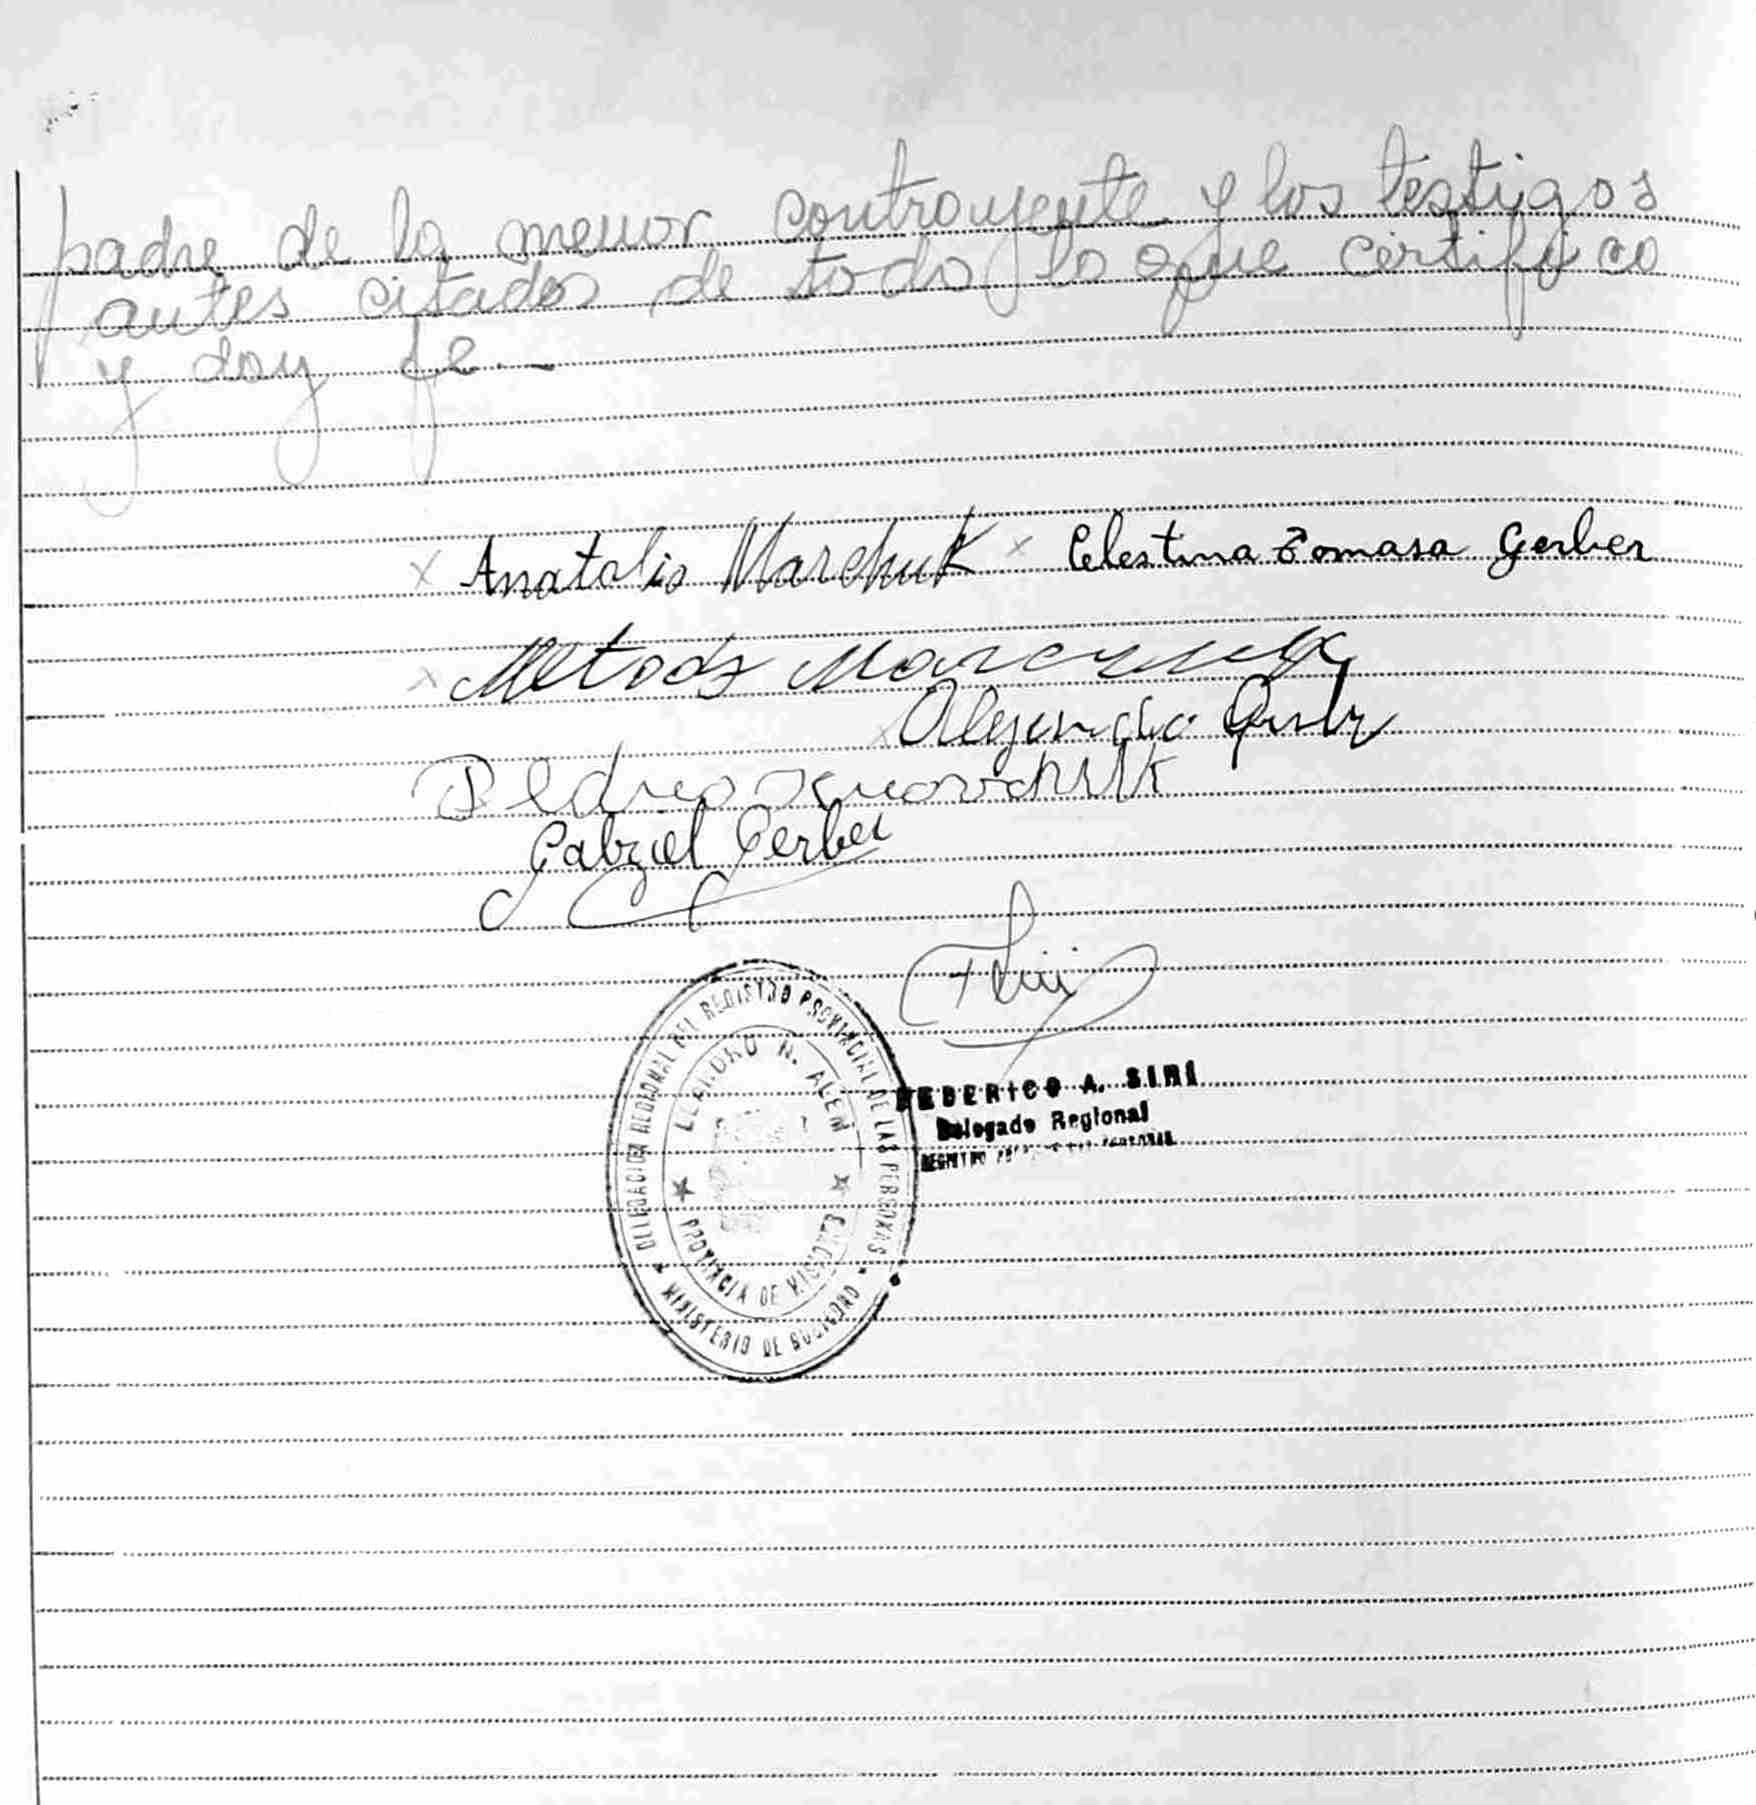 padre de la menor contrayente y los testigos
antes citados de todo lo que certifico
y doy fe.-
x Anatolio Marchuk x Celestina Tomasa Gerber
x Metody
x Alejandro
Pedro
Gabriel Gerber
DELEGACION REGIONAL DEL REGISTRO PROVINCIAL DE LAS PERSONAS
LEANDRO N. ALEM
PROVINCIA DE MISIONES
MINISTERIO DE GOBIERNO
FEDERICO A. SIRI
Delegado Regional
REGISTRO